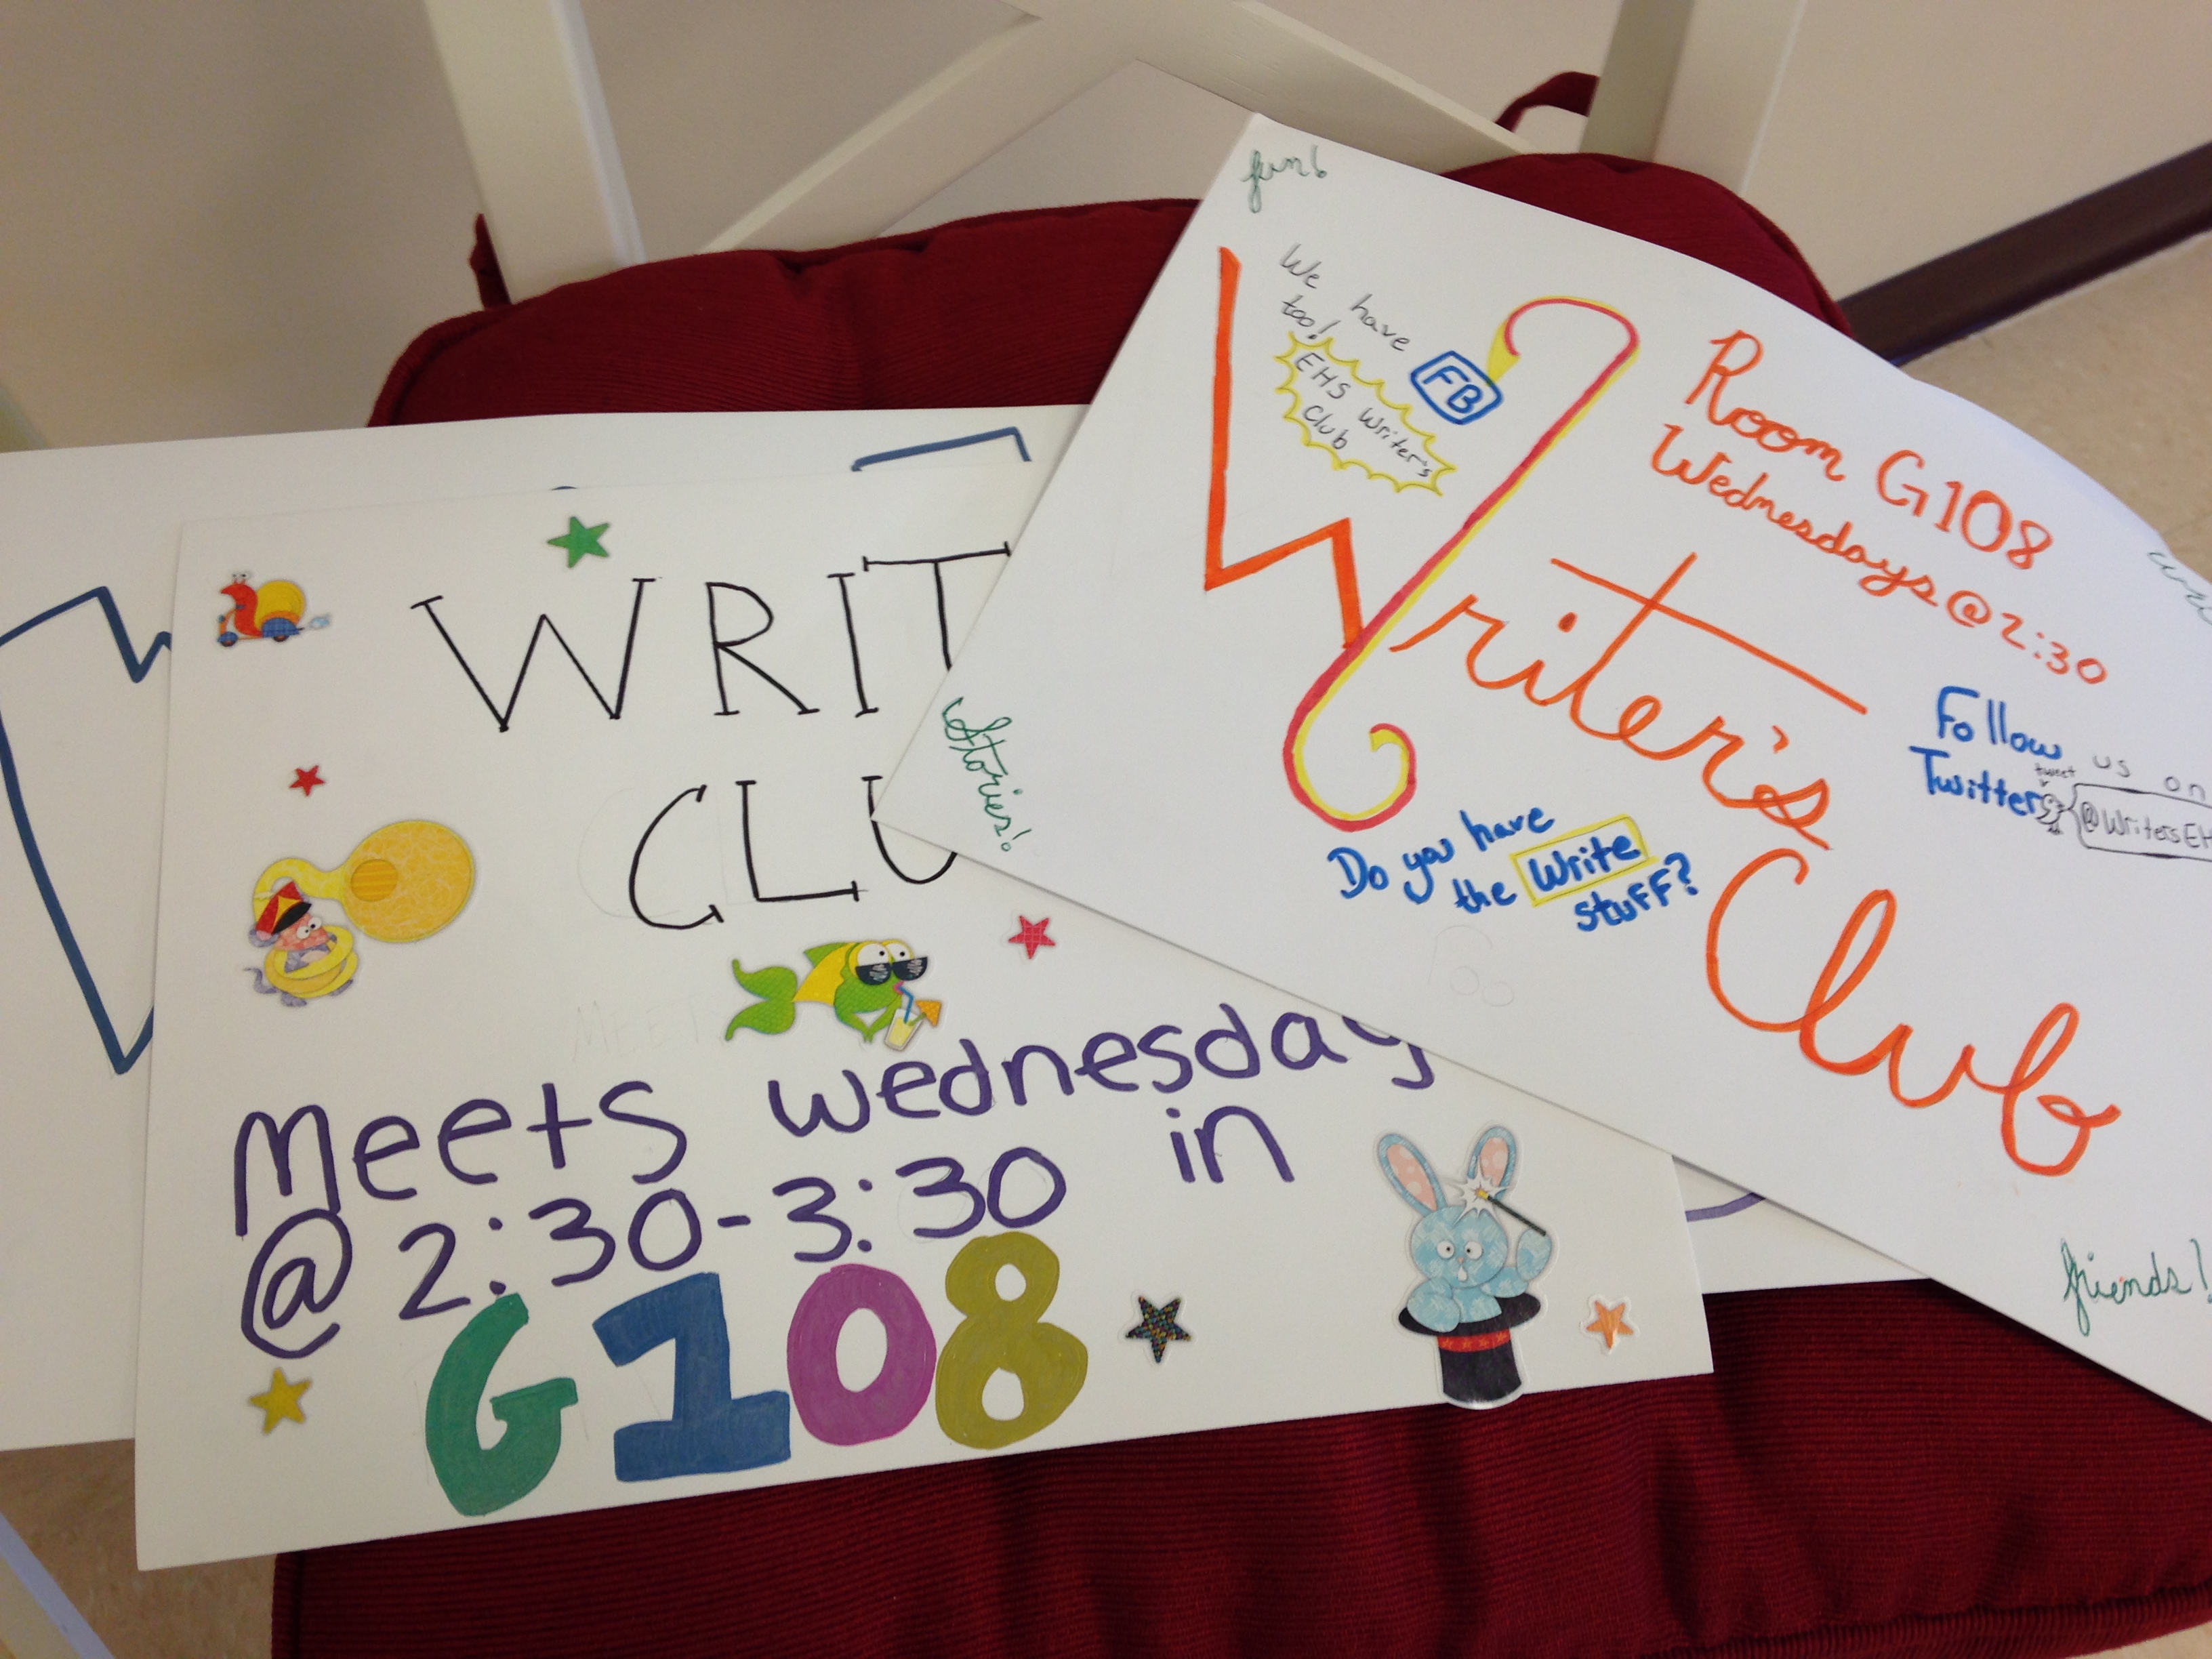 WRIT
CLU
Meets wednesday
@ 2:30-3:30 in
G108
fun!
We have FB
too!
EHS Writer's
Club
Room G108
Wednesdays @ 2:30
Writer's
Club
Follow us on
Twitter
tweet
@WritersEH
Do you have
the Write
stuff?
Stories!
friends!